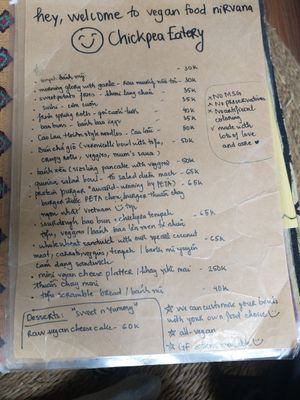 hey, welcome to vegan food nirvana
Chickpea Eatery
bánh mỳ - 30K
morning glory with garlic - rau muống xào tỏi - 30K
sweet potato fries - khoai lang chiên - 35K
sushi - cơm cuộn - 35K
fresh spring rolls - gỏi cuốn tươi - 40K
bao buns - bánh bao - 35K
Cao Lau - Hoi An style noodles - Cao lầu - 50K
Bún chả giò (vermicelli bowl with tofu, - 50K
crispy rolls, veggies, mum's sauce)
bánh xèo (sizzling pancake with veggies) - 50K
salad bowl - tô salad - 65K
protein burger "award-winning by PETA) - 65K
burger được PETA chọn, burger thuần chay
ngon nhất Vietnam
sourdough bao bun + chickpea tempeh - 65K
tofu, veggies / bánh bao lên men tự nhiên
wholewheat sandwich with our special coconut - 65K
meat, carrots, veggies, tempeh / bánh mì nguyên
cám dạng sandwich
mini vegan cheese platter / khay phô mai - 250K
thuần chay mini
tofu scramble bread / bánh mì - 40K
x No MSG
x No preservatives
x No artificial
coloring
✓ made with
lots of love
and care ♥
Desserts: "sweet n yummy"
Raw vegan cheesecake - 60K
☆ we can customize your bowls
with your own food choice
☆ all-vegan
☆ GF